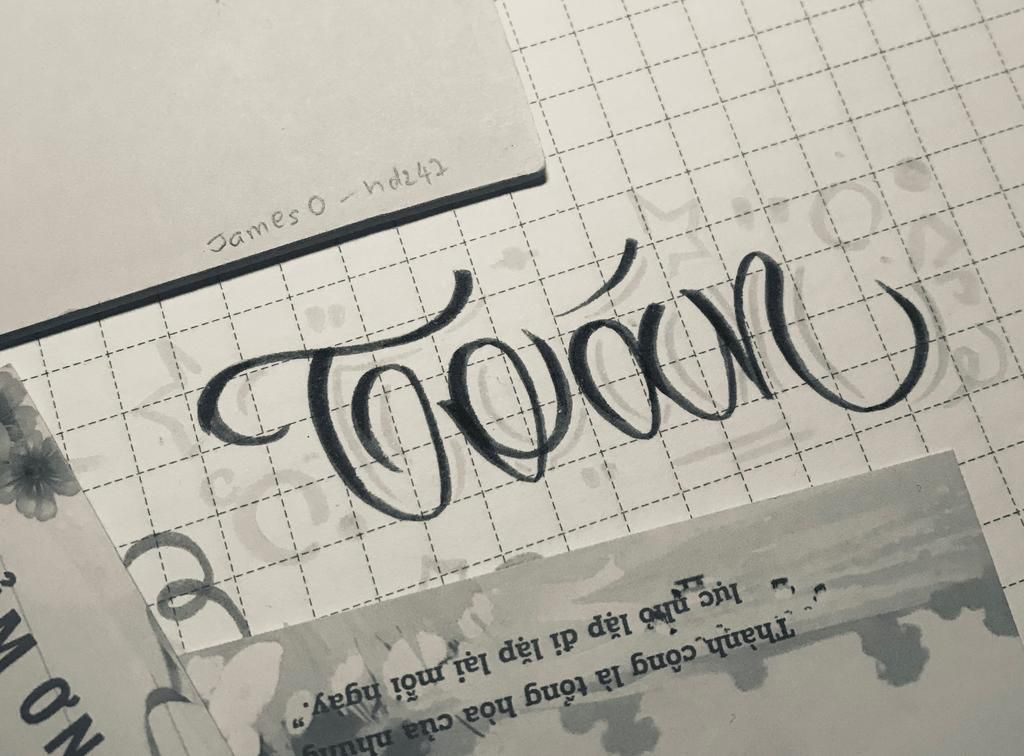 James O - nd247
Toán
ƠN
"Thành công là tổng hòa của những
nỗ lực nhỏ lặp đi lặp lại mỗi ngày."